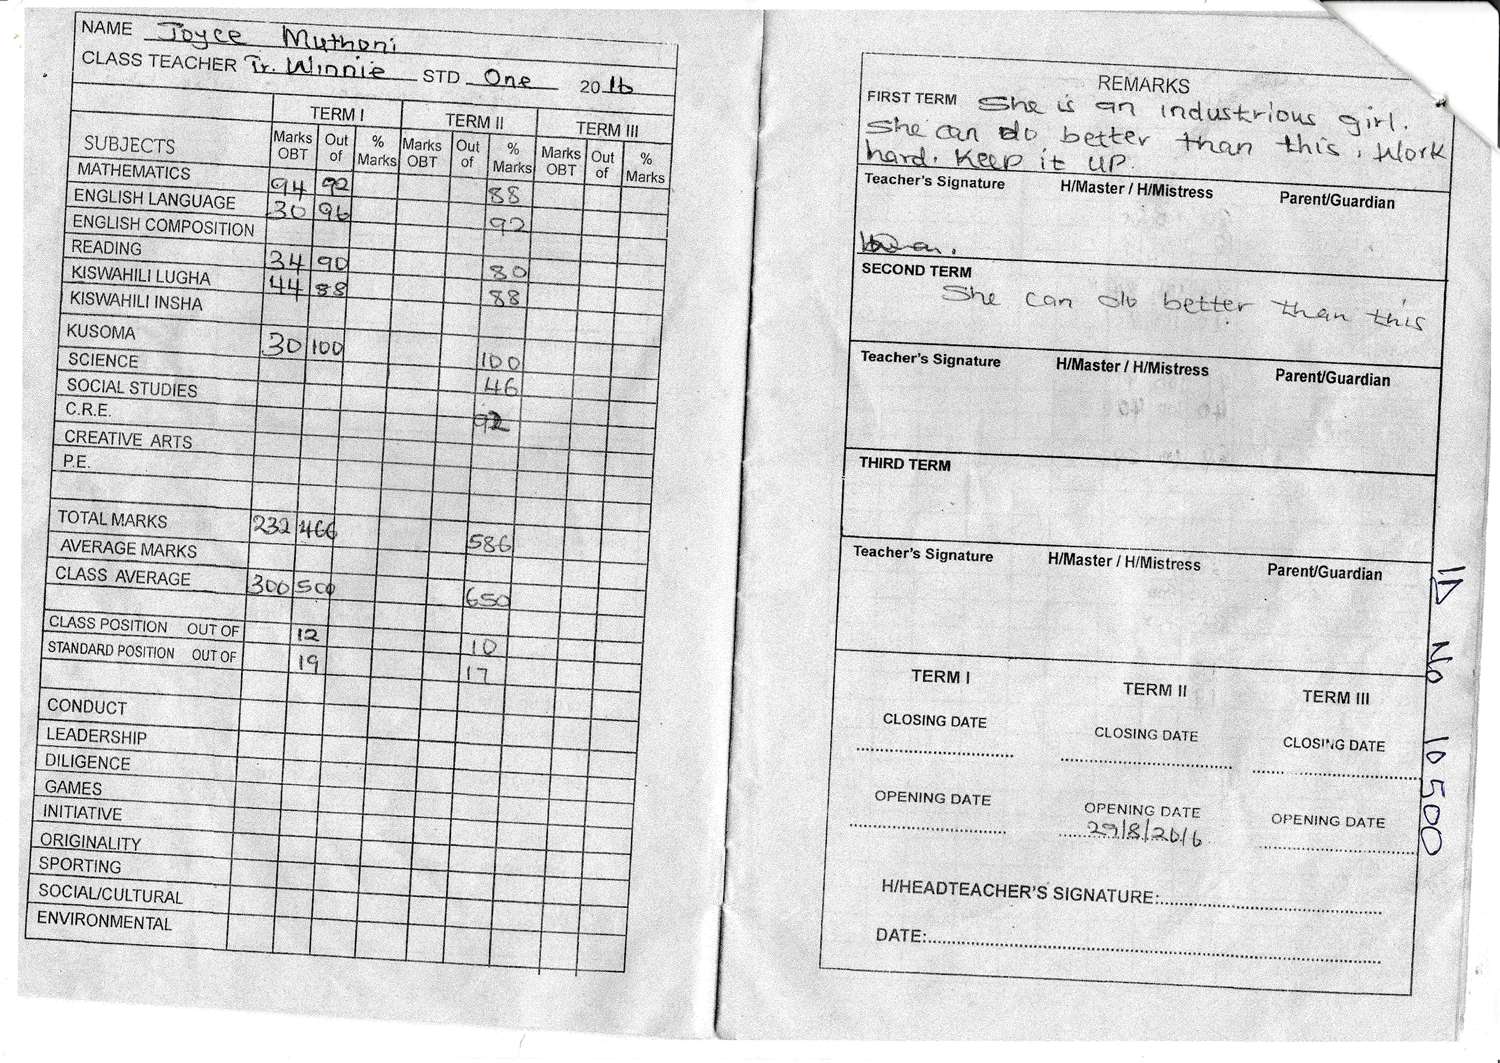 NAME Joyce Muthoni
CLASS TEACHER Tr. Winnie STD One 2016
TERM I TERM II TERM III
SUBJECTS Marks OBT Out of % Marks Marks OBT Out of % Marks Marks OBT Out of % Marks
MATHEMATICS 94 92 88
ENGLISH LANGUAGE 30 96 92
ENGLISH COMPOSITION
READING 34 90 80
KISWAHILI LUGHA 44 88 88
KISWAHILI INSHA
KUSOMA 30 100 100
SCIENCE 46
SOCIAL STUDIES 92
C.R.E.
CREATIVE ARTS
P.E.
TOTAL MARKS 232 466 586
AVERAGE MARKS
CLASS AVERAGE 300 500 650
CLASS POSITION OUT OF 12 10
STANDARD POSITION OUT OF 19 17
CONDUCT
LEADERSHIP
DILIGENCE
GAMES
INITIATIVE
ORIGINALITY
SPORTING
SOCIAL/CULTURAL
ENVIRONMENTAL
REMARKS
FIRST TERM She is an industrious girl.
She can do better than this, Work
hard. Keep it up.
Teacher's Signature H/Master / H/Mistress Parent/Guardian
SECOND TERM
She can do better than this
Teacher's Signature H/Master / H/Mistress Parent/Guardian
THIRD TERM
Teacher's Signature H/Master / H/Mistress Parent/Guardian
TERM I TERM II TERM III
CLOSING DATE CLOSING DATE CLOSING DATE
OPENING DATE OPENING DATE OPENING DATE
29/8/2016
H/HEADTEACHER'S SIGNATURE:
DATE:
ID No 10500